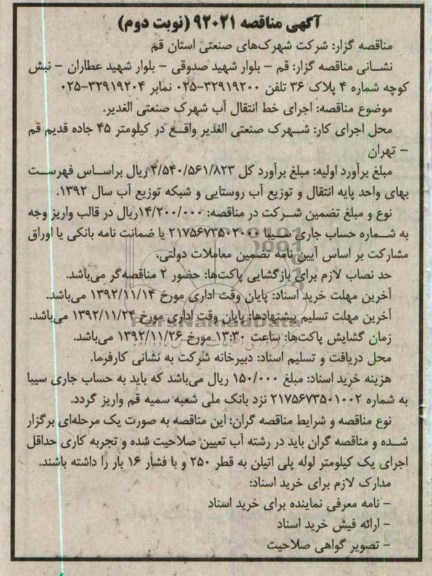 آگهی مناقصه ۹۲۰۲۱ (نوبت دوم)
مناقصه گزار: شرکت شهرک‌های صنعتی استان قم
نشانی مناقصه گزار: قم – بلوار شهید صدوقی – بلوار شهید عطاران – نبش
کوچه شماره ۴ پلاک ۳۶ تلفن ۳۲۹۱۹۲۰۰-۰۲۵ نمابر ۳۲۹۱۹۲۰۴-۰۲۵
موضوع مناقصه: اجرای خط انتقال آب شهرک صنعتی الغدیر.
محل اجرای کار: شهرک صنعتی الغدیر واقع در کیلومتر ۴۵ جاده قدیم قم
– تهران
مبلغ برآورد اولیه: مبلغ برآورد کل ۲/۵۴۰/۵۶۱/۸۲۳ ریال براساس فهرست
بهای واحد پایه انتقال و توزیع آب روستایی و شبکه توزیع آب سال ۱۳۹۲.
نوع و مبلغ تضمین شرکت در مناقصه: ۱۴/۲۰۰/۰۰۰ریال در قالب واریز وجه
به شماره حساب جاری سیبا ۲۱۷۵۶۷۳۵۰۲۰۰۰ یا ضمانت نامه بانکی یا اوراق
مشارکت بر اساس آیین نامه تضمین معاملات دولتی.
حد نصاب لازم برای بازگشایی پاکت‌ها: حضور ۲ مناقصه‌گر می‌باشد.
آخرین مهلت خرید اسناد: پایان وقت اداری مورخ ۱۳۹۲/۱۱/۱۴ می‌باشد.
آخرین مهلت تسلیم پیشنهادها: پایان وقت اداری مورخ ۱۳۹۲/۱۱/۲۴ می‌باشد.
زمان گشایش پاکت‌ها: ساعت ۱۳:۳۰ مورخ ۱۳۹۲/۱۱/۲۶ می‌باشد.
محل دریافت و تسلیم اسناد: دبیرخانه شرکت به نشانی کارفرما.
هزینه خرید اسناد: مبلغ ۱۵۰/۰۰۰ ریال می‌باشد که باید به حساب جاری سیبا
به شماره ۲۱۷۵۶۷۳۵۰۱۰۰۲ نزد بانک ملی شعبه سمیه قم واریز گردد.
نوع مناقصه و شرایط مناقصه گران: این مناقصه به صورت یک مرحله‌ای برگزار
شده و مناقصه گران باید در رشته آب تعیین صلاحیت شده و تجربه کاری حداقل
اجرای یک کیلومتر لوله پلی اتیلن به قطر ۲۵۰ و با فشار ۱۶ بار را داشته باشند.
مدارک لازم برای خرید اسناد:
– نامه معرفی نماینده برای خرید اسناد
– ارائه فیش خرید اسناد
– تصویر گواهی صلاحیت